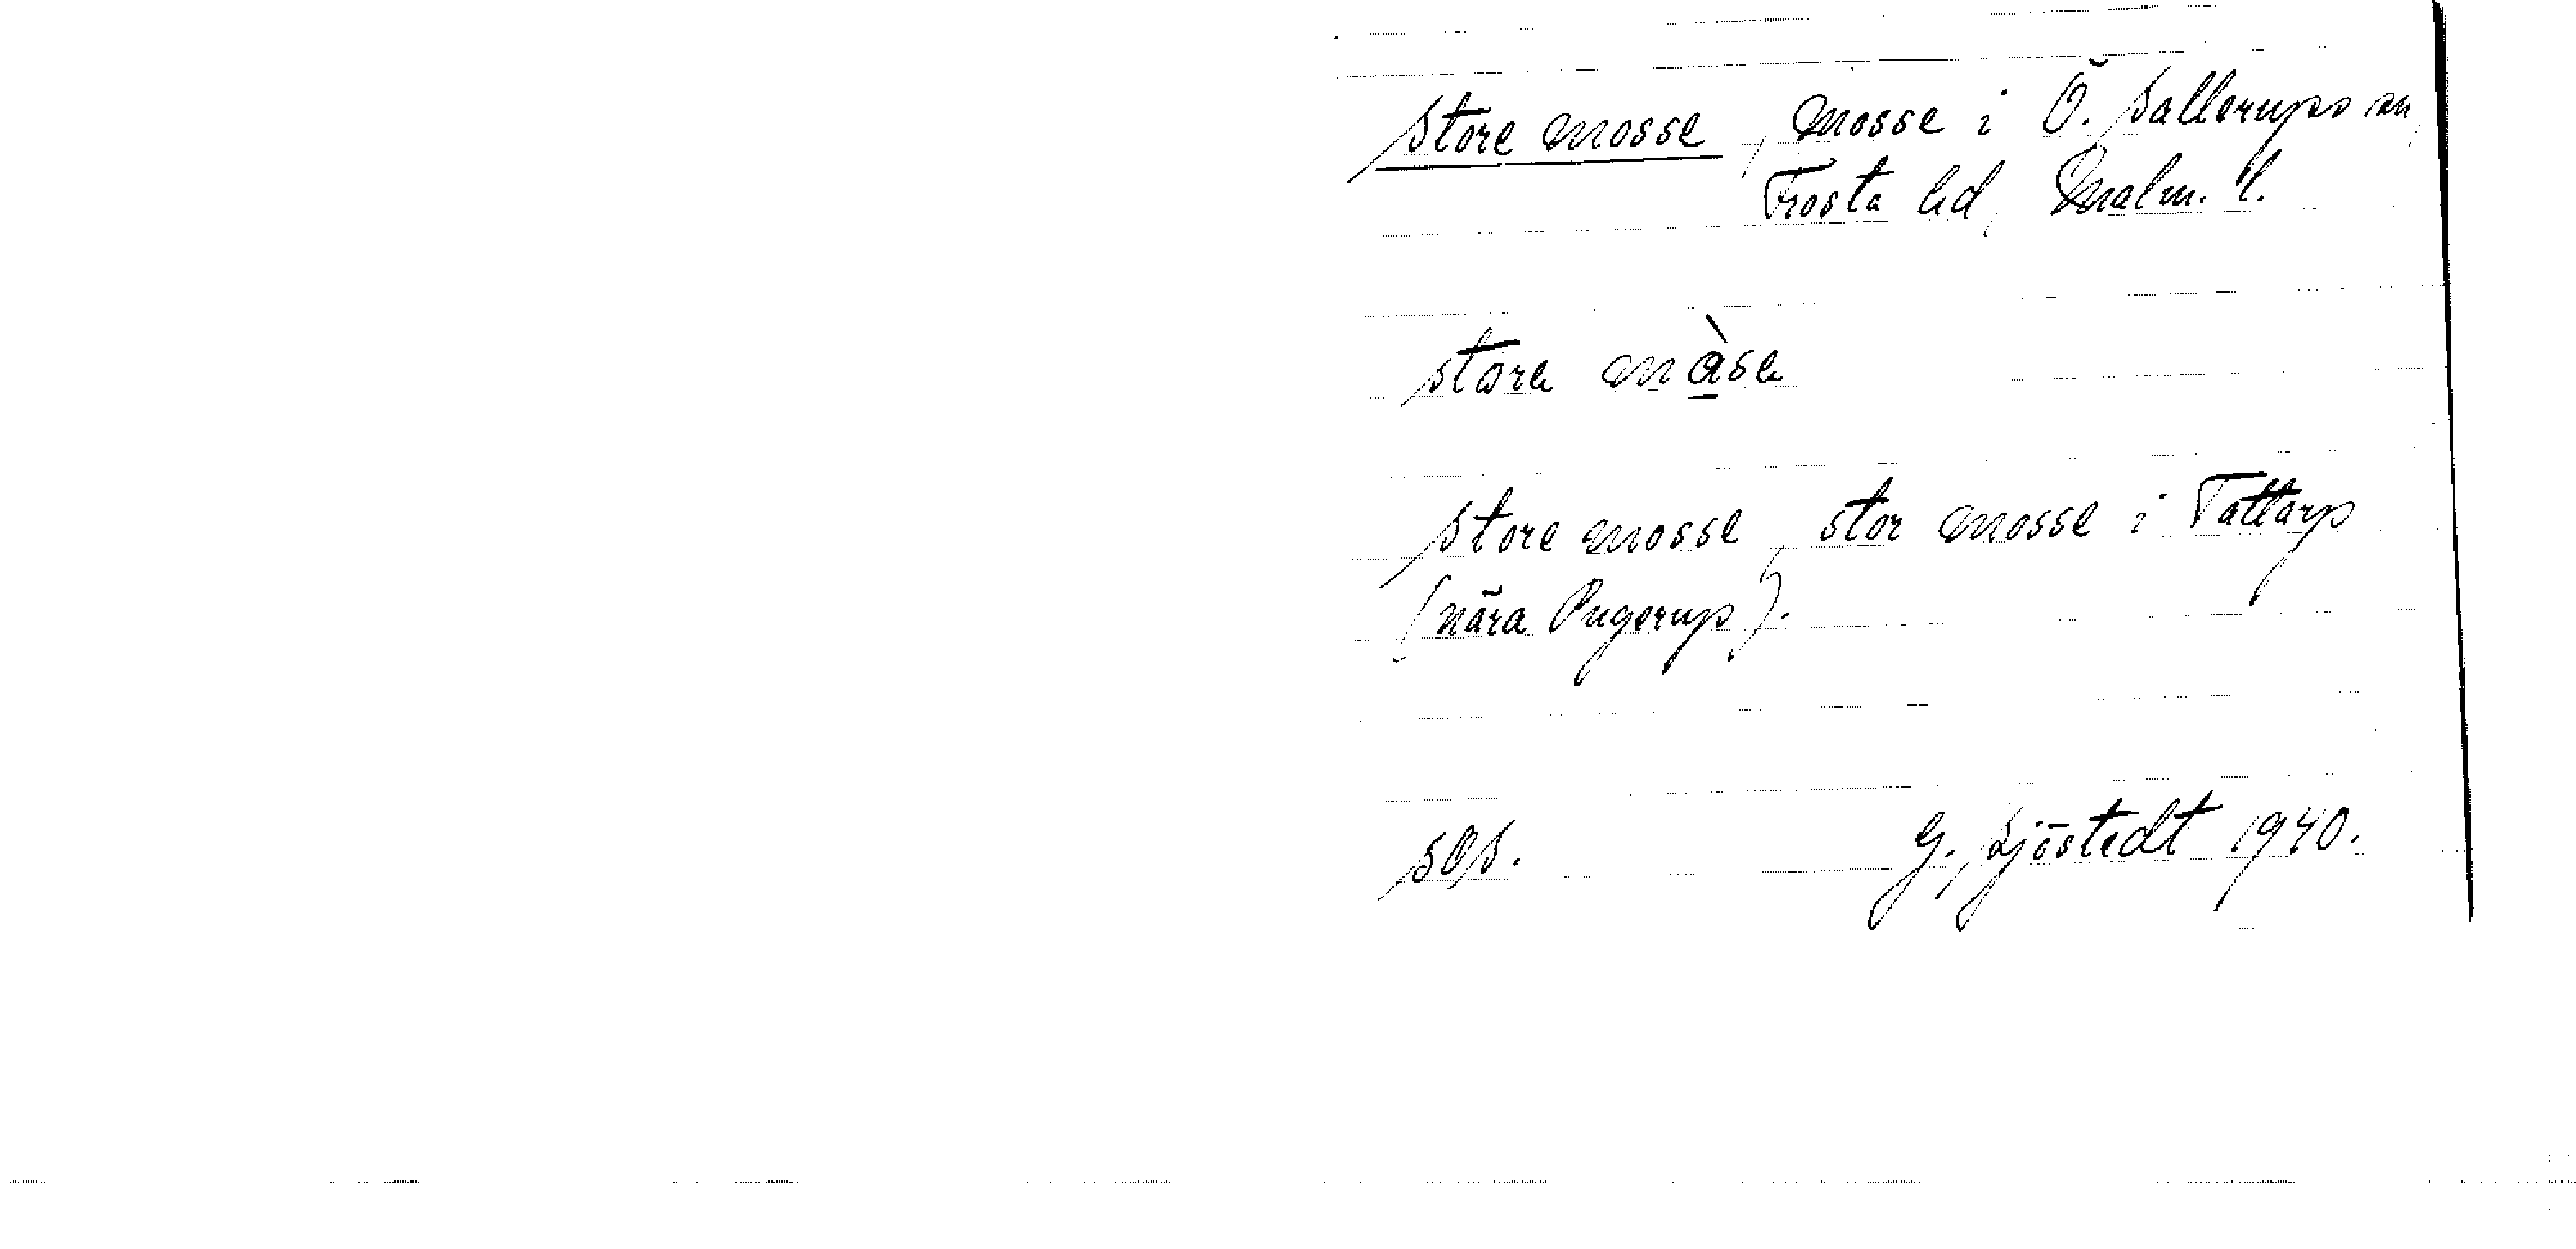 Store mosse, Mosse i Ö. Sallerups sn,
Frosta hd, Malm. l.
store måse
Store mosse, stor mosse i Tattarp
(nära Pugerup).
SOS. G. Sjöstedt 1940.